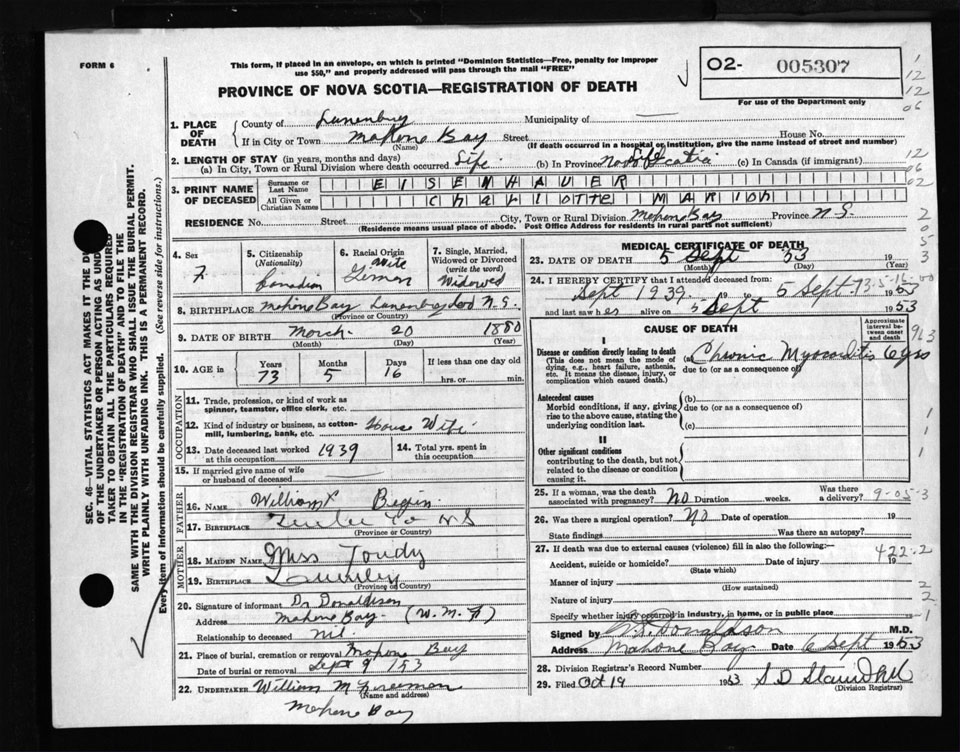 FORM 6
This form, if placed in an envelope, on which is printed "Dominion Statistics—Free, penalty for improper
use $50," and properly addressed will pass through the mail "FREE"
PROVINCE OF NOVA SCOTIA—REGISTRATION OF DEATH
O2- 005307
For use of the Department only
1. PLACE OF DEATH
County of Lunenburg Municipality of
If in City or Town Mahone Bay Street House No.
(Name) (If death occurred in a hospital or institution, give the name instead of street and number)
2. LENGTH OF STAY (in years, months and days)
(a) In City, Town or Rural Division where death occurred Life (b) In Province Nova Scotia Life (c) In Canada (if immigrant)
3. PRINT NAME OF DECEASED
Surname or Last Name EISENHAUER
All Given or Christian Names Charlotte Marion
RESIDENCE No. Street City, Town or Rural Division Mahone Bay Province N.S.
(Residence means usual place of abode. Post Office Address for residents in rural parts not sufficient)
4. Sex F.
5. Citizenship (Nationality) Canadian
6. Racial Origin White German
7. Single, Married, Widowed or Divorced (write the word) Widowed
8. BIRTHPLACE Mahone Bay Lunenburg N.S.
(Province or Country)
9. DATE OF BIRTH March 20 1880
(Month) (Day) (Year)
10. AGE in Years Months Days If less than one day old
73 5 16 hrs. or min.
OCCUPATION
11. Trade, profession, or kind of work as
spinner, teamster, office clerk, etc.
12. Kind of industry or business, as cotton-
mill, lumbering, bank, etc. House Wife
13. Date deceased last worked at this occupation 1939
14. Total yrs. spent in this occupation
15. If married give name of wife
or husband of deceased
FATHER
16. NAME William
17. BIRTHPLACE Co N S
(Province or Country)
MOTHER
18. MAIDEN NAME Miss
19. BIRTHPLACE
(Province or Country)
20. Signature of informant Dr Donaldson
Address Mahone Bay
Relationship to deceased nil.
21. Place of burial, cremation or removal Mahone Bay
Date of burial or removal Sept 9
22. UNDERTAKER William M
(Name and address)
Mahone Bay
MEDICAL CERTIFICATE OF DEATH
23. DATE OF DEATH 5 Sept 53 19
(Month) (Year)
24. I HEREBY CERTIFY that I attended deceased from:
Sept 1939 19 to 5 Sept 1953
and last saw her alive on 5 Sept 1953
CAUSE OF DEATH
Approximate interval between onset and death
I
Disease or condition directly leading to death (a) Chronic Myocarditis 6 yrs
(This does not mean the mode of dying, e.g., heart failure, asthenia, etc. It means the disease, injury, or complication which caused death.) due to (or as consequence of)
Antecedent causes (b)
Morbid conditions, if any, giving rise to the above cause, stating the underlying condition last. due to (or as a consequence of)
(c)
II
Other significant conditions
contributing to the death, but not related to the disease or condition causing it.
25. If a woman, was the death associated with pregnancy? No Duration weeks. Was there a delivery?
9-05-3
26. Was there a surgical operation? No Date of operation 19
State findings Was there an autopsy?
27. If death was due to external causes (violence) fill in also the following:—
422-2
Accident, suicide or homicide? Date of injury 19
(State which)
Manner of injury
(How sustained)
Nature of injury
Specify whether injury occurred in industry, in home, or in public place
Signed by Donaldson M.D.
Address Mahone Bay Date 6 Sept 1953
28. Division Registrar's Record Number 7
29. Filed Oct 19 1953
(Division Registrar)
SEC. 46—VITAL STATISTICS ACT MAKES IT THE
OF THE UNDERTAKER OR PERSON ACTING AS
TAKER TO OBTAIN ALL THE PARTICULARS REQUIRED
IN THE "REGISTRATION OF DEATH" AND TO FILE THE
SAME WITH THE DIVISION REGISTRAR WHO SHALL ISSUE THE BURIAL PERMIT.
WRITE PLAINLY WITH UNFADING INK. THIS IS A PERMANENT RECORD.
Every item of information should be carefully supplied. (See reverse side for instructions.)